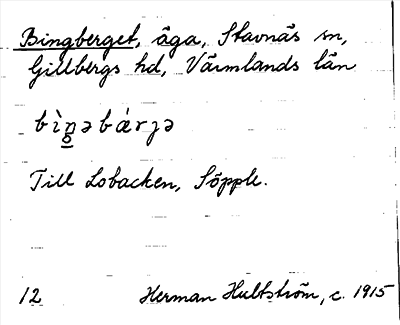 Bingberget, äga, Stavnäs sn,
Gillbergs hd, Värmlands län
bìŋ̱əbǽrjə
Till Lobacken, Söpple.
12 Herman Hultström, c. 1915